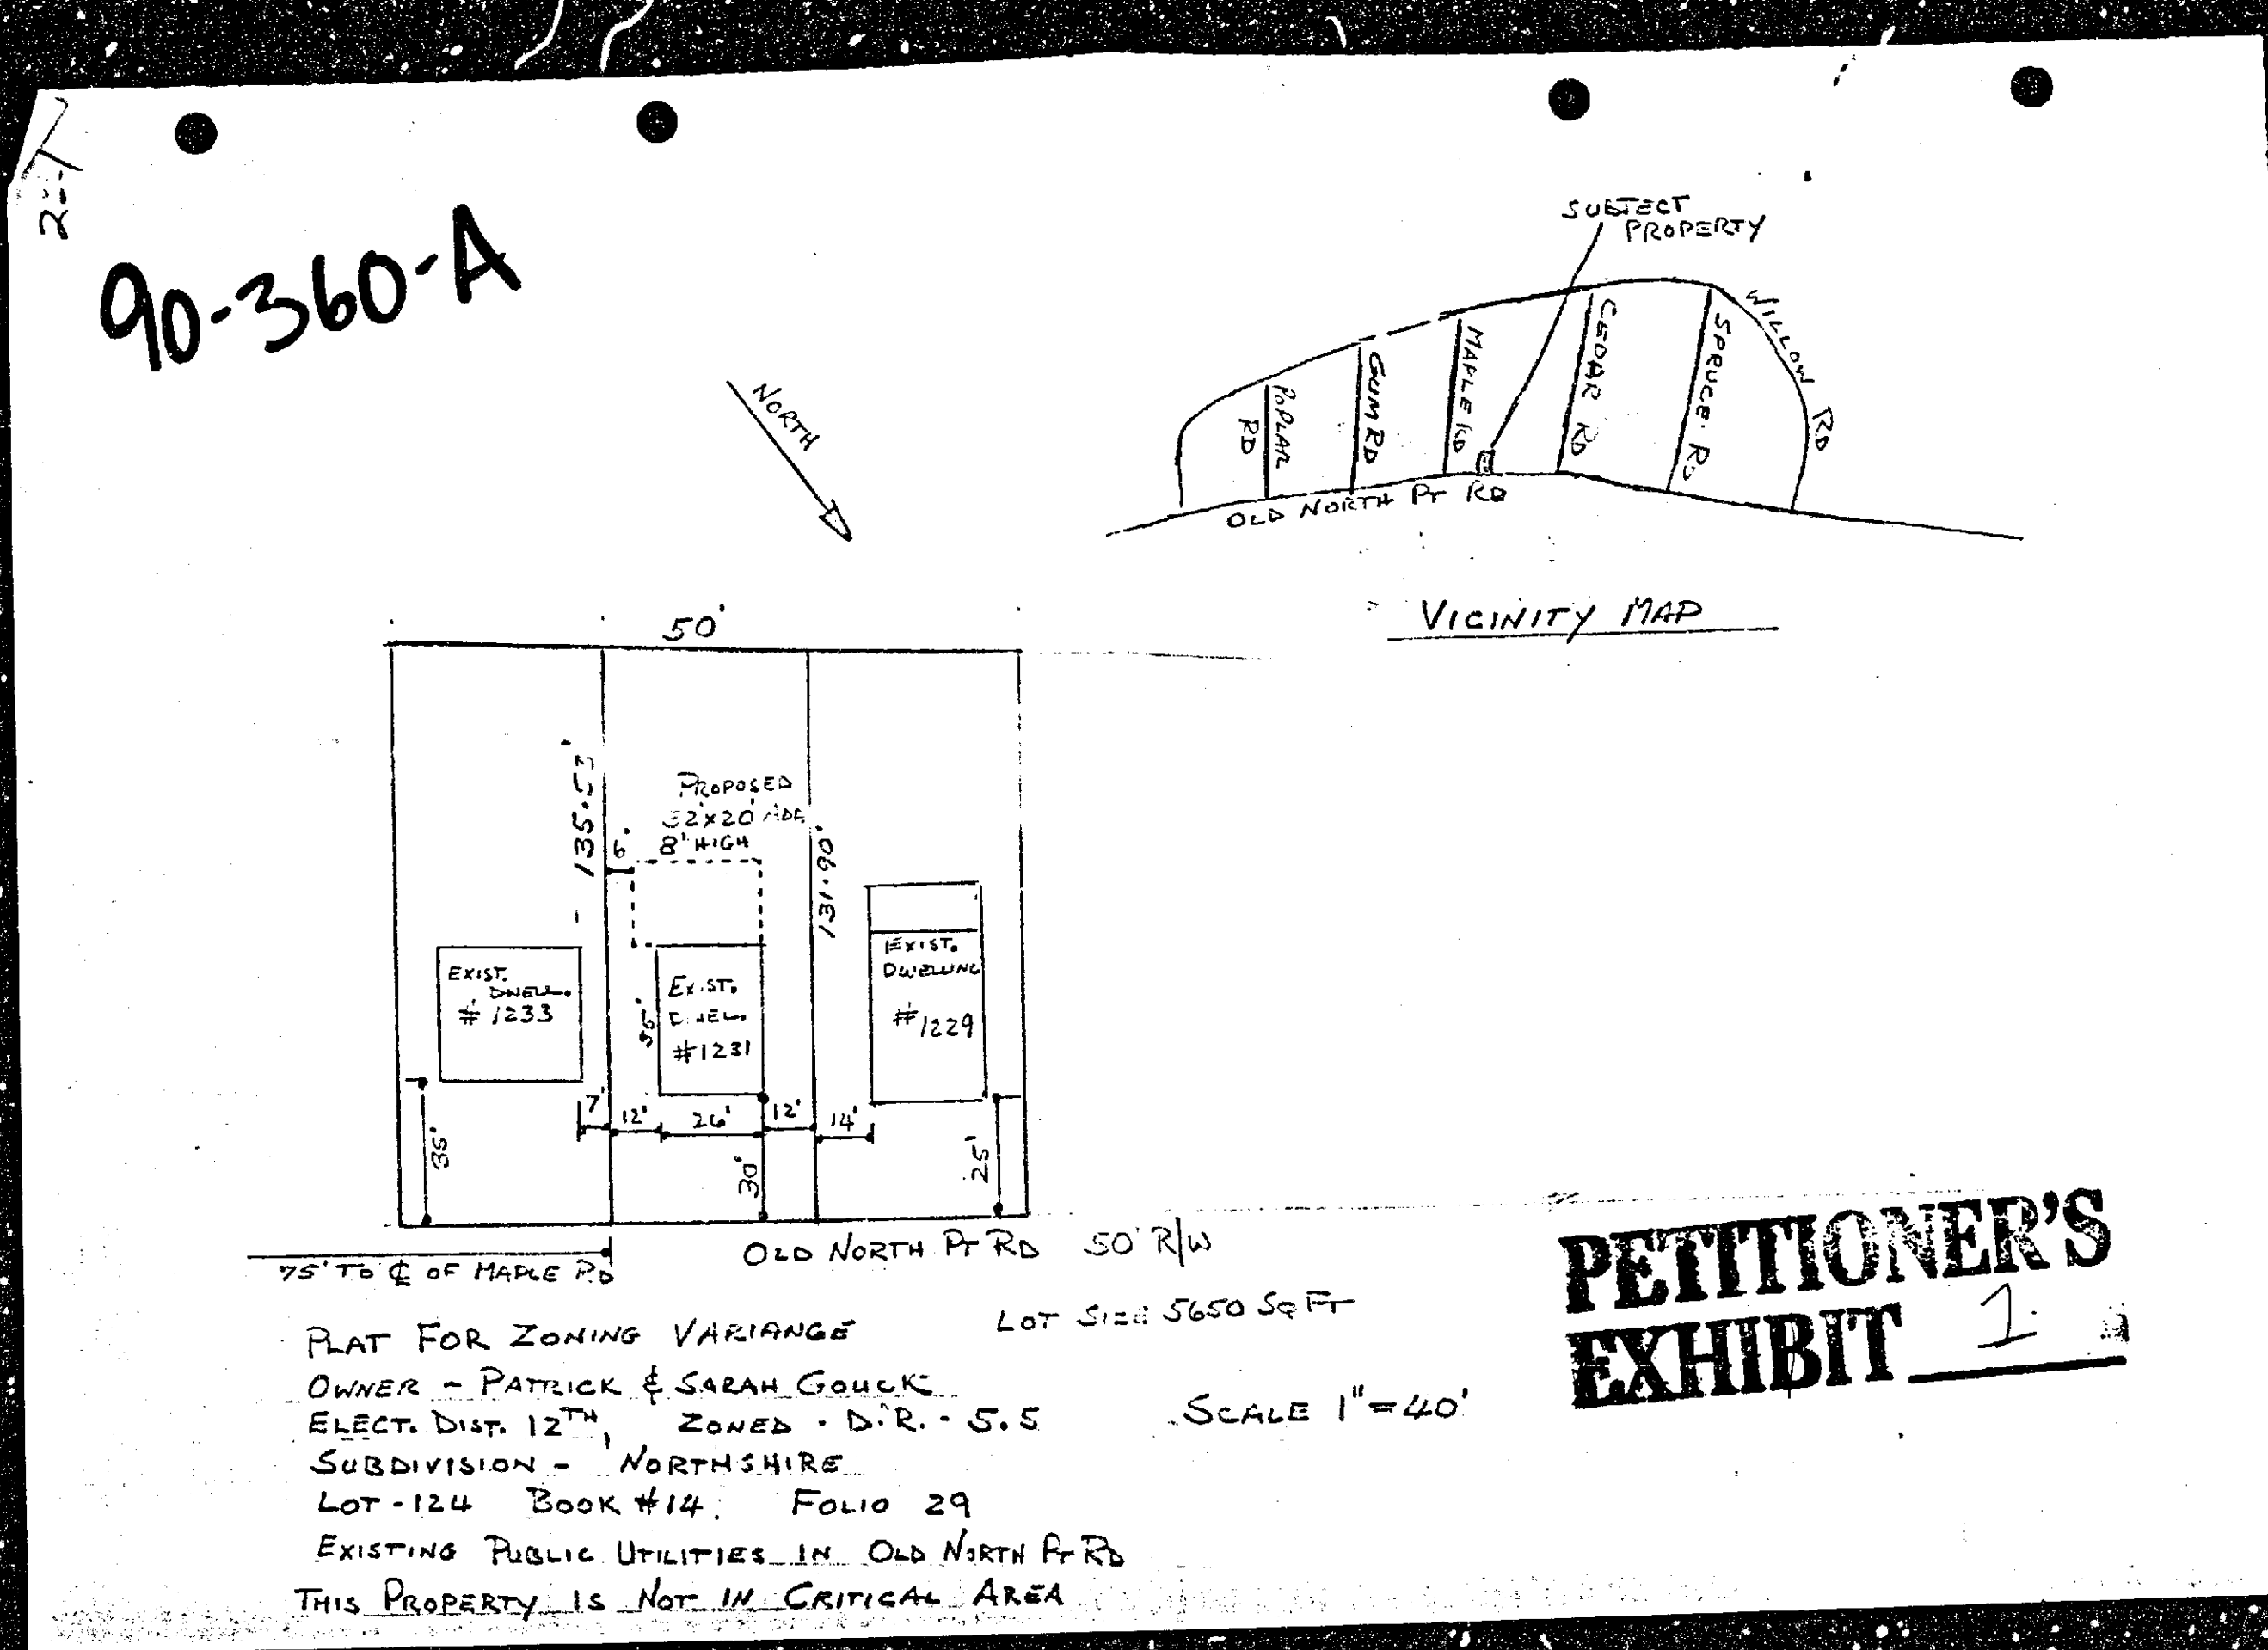 90-360-A
SUBJECT
PROPERTY
NORTH
POPLAR
RD
GUM RD
MAPLE RD
CEDAR RD
SPRUCE RD
WILLOW RD
OLD NORTH PT RD
VICINITY MAP
50'
PROPOSED
32'x20' ADD.
8' HIGH
6'
131.90'
EXIST.
DWELL.
# 1233
EXIST.
DWEL.
#1231
EXIST.
DWELLING
#1229
7'
12'
26'
12'
14'
35'
30'
25'
OLD NORTH PT RD 50' R/W
75' TO ℄ OF MAPLE RD
LOT SIZE 5650 SQ FT
PLAT FOR ZONING VARIANCE
OWNER - PATRICK & SARAH GOUCK
ELECT. DIST. 12TH, ZONED - D.R. - 5.5
SCALE 1"=40'
SUBDIVISION - NORTHSHIRE
LOT - 124 BOOK #14. FOLIO 29
EXISTING PUBLIC UTILITIES IN OLD NORTH PT RD
THIS PROPERTY IS NOT IN CRITICAL AREA
PETITIONER'S
EXHIBIT 1